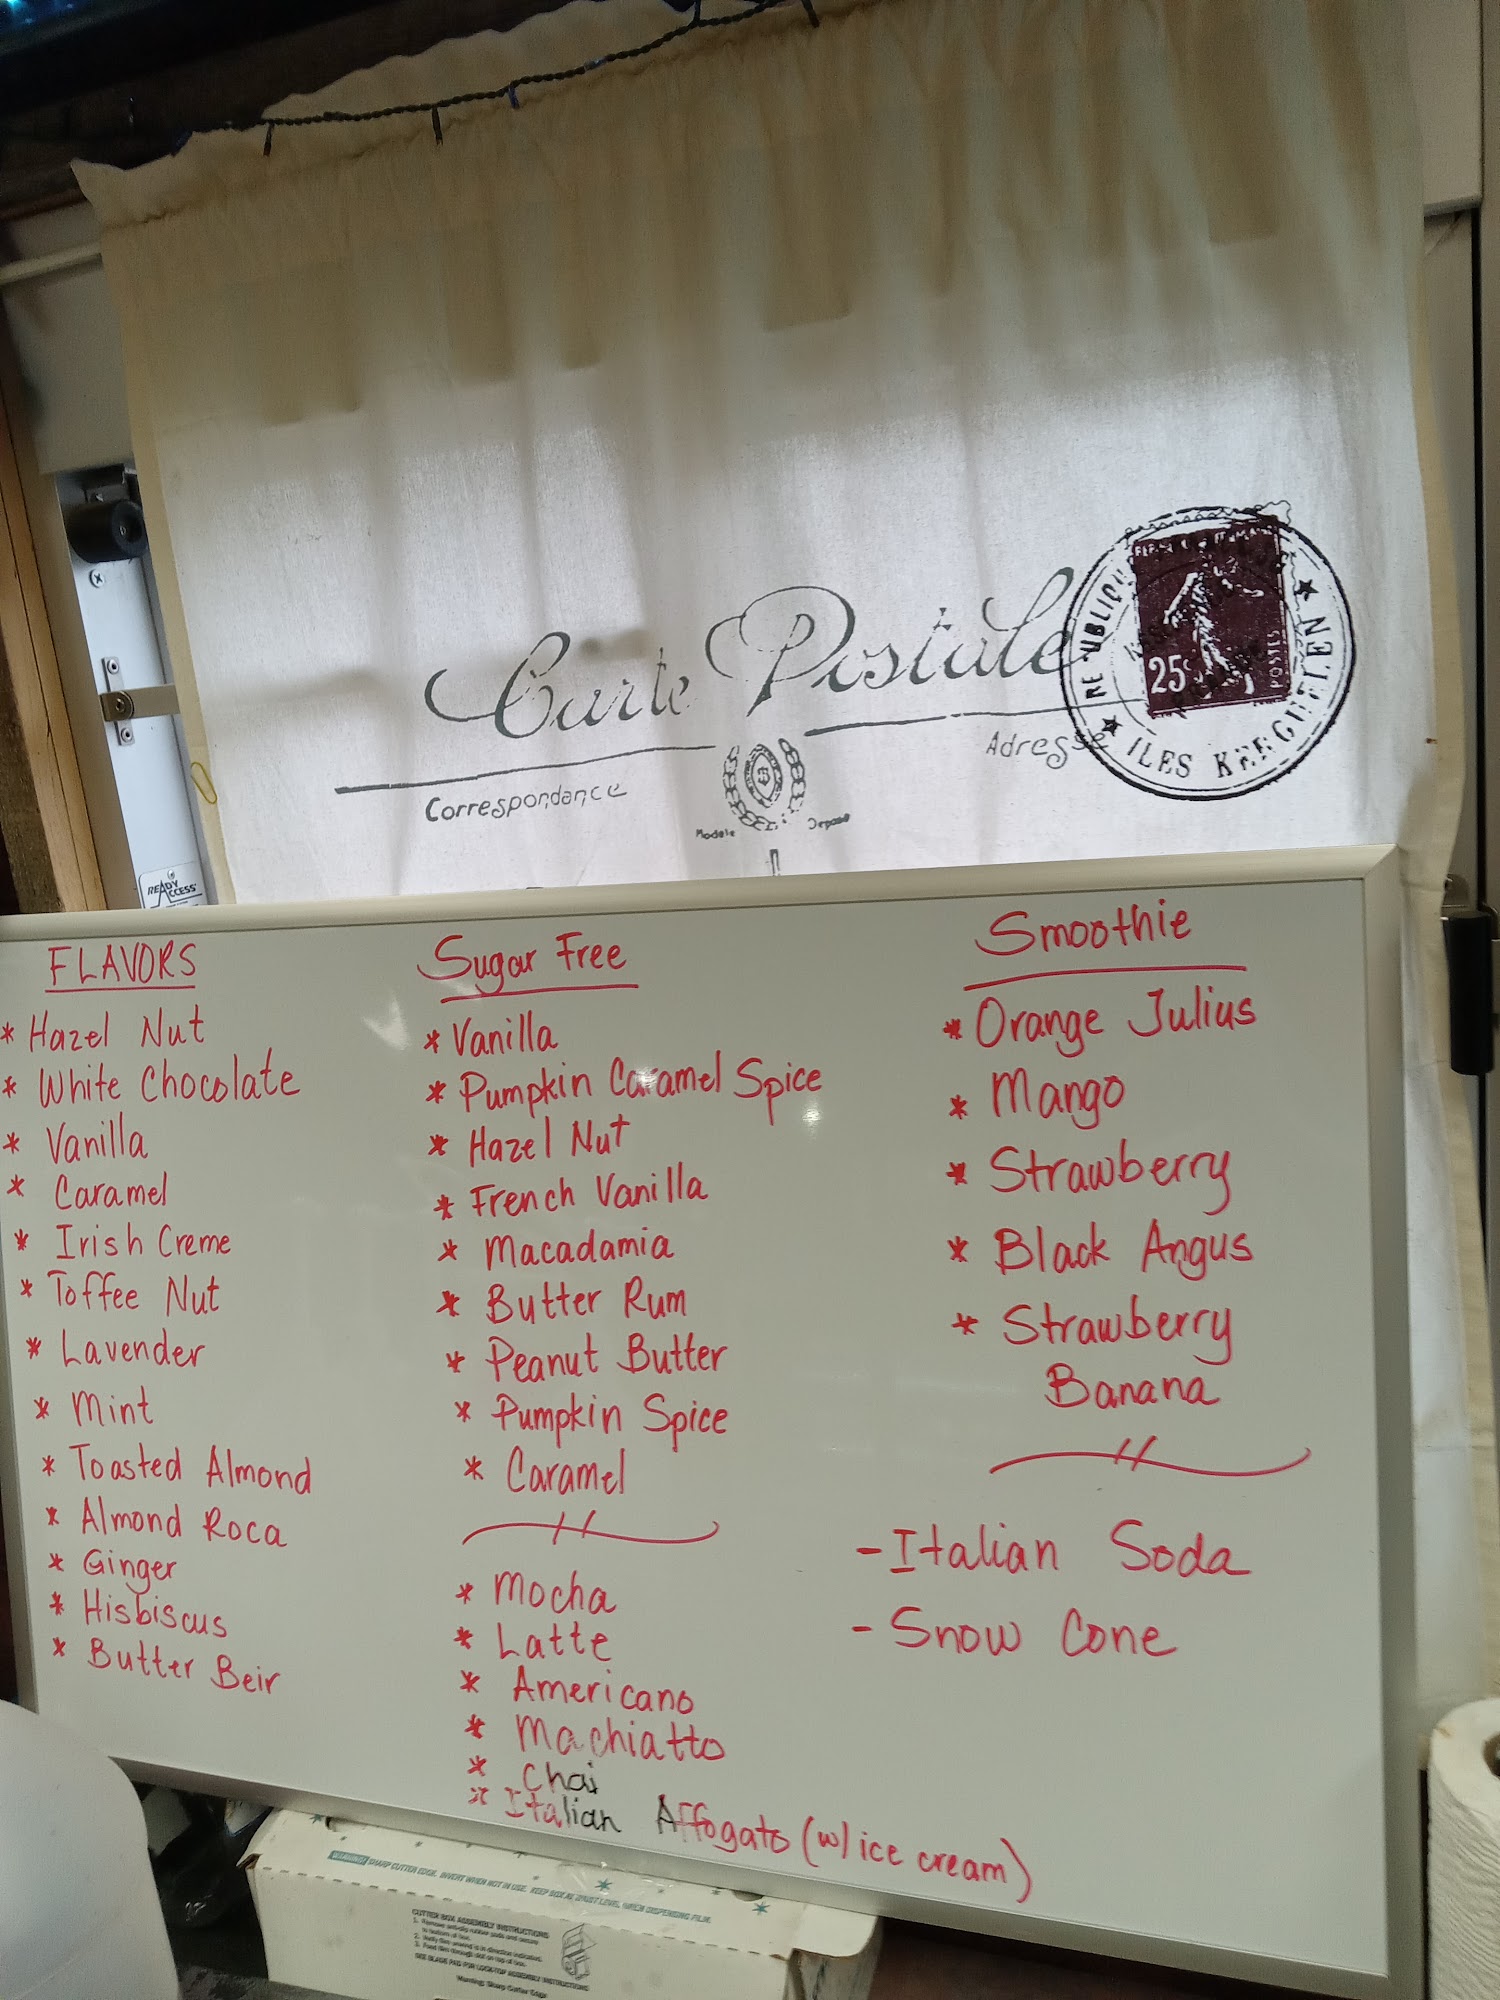 Carte Postale
Correspondance
Adresse
25c
POSTES
ILES KERGUELEN
Modele
READY ACCESS
FLAVORS
* Hazel Nut
* White Chocolate
* Vanilla
* Caramel
* Irish Creme
* Toffee Nut
* Lavender
* Mint
* Toasted Almond
* Almond Roca
* Ginger
* Hisbiscus
* Butter Beir
Sugar Free
* Vanilla
* Pumpkin Caramel Spice
* Hazel Nut
* French Vanilla
* Macadamia
* Butter Rum
* Peanut Butter
* Pumpkin Spice
* Caramel
* Mocha
* Latte
* Americano
* Machiatto
* Chai
* Italian Affogato (w/ ice cream)
Smoothie
* Orange Julius
* Mango
* Strawberry
* Black Angus
* Strawberry
Banana
- Italian Soda
- Snow Cone
SHARP CUTTER EDGE. INVERT WHEN NOT IN USE. KEEP BOX AT WAIST LEVEL WHEN DISPENSING FILM.
CUTTER BOX ASSEMBLY INSTRUCTIONS
Warning: Sharp Cutter Edge